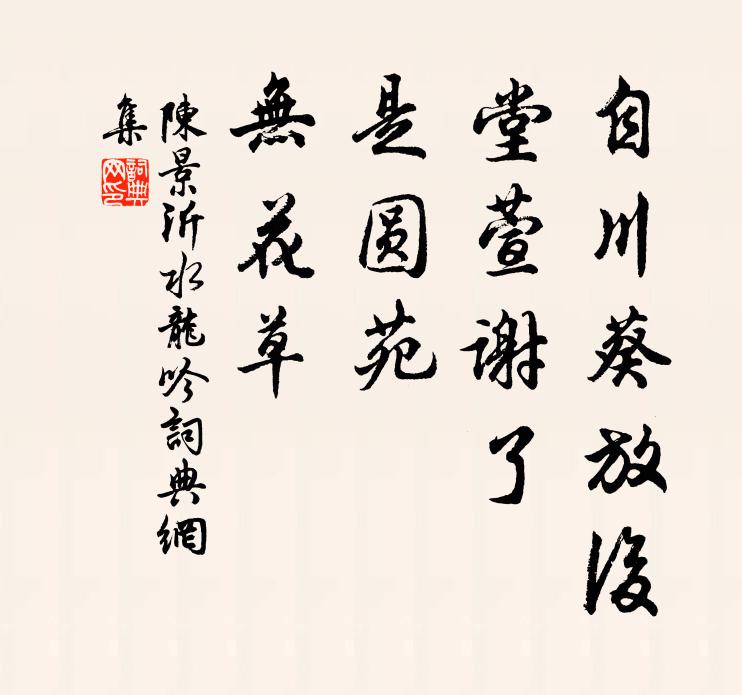 自川葵放後
堂萱謝了
是圆苑
無花草
陳景沂水龍吟詞典網
集
詞典网印